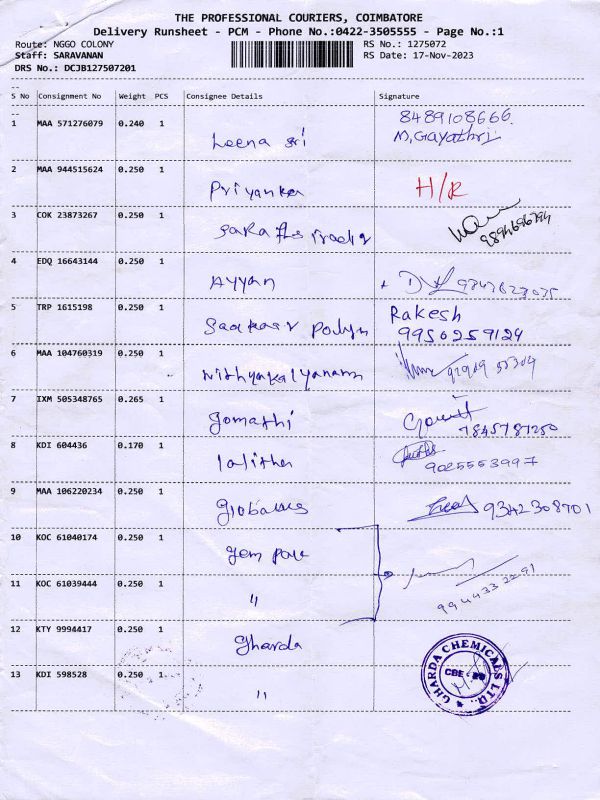 THE PROFESSIONAL COURIERS, COIMBATORE
Delivery Runsheet - PCM - Phone No.:0422-3505555 - Page No.:1
Route: NGGO COLONY RS No.: 1275072
Staff: SARAVANAN RS Date: 17-Nov-2023
DRS No.: DCJB127507201
S No Consignment No Weight PCS Consignee Details Signature
1 MAA 571276079 0.240 1 Leena Sri 8489108666.
M, Gayathri
2 MAA 944515624 0.250 1 Priyanka H/R
3 COK 23873267 0.250 1
4 EDQ 16643144 0.250 1 Ayyan
5 TRP 1615198 0.250 1 Rakesh
9950259124
6 MAA 104760319 0.250 1 Nithyakalyanam
7 IXM 505348765 0.265 1 Gomathi
7845787250
8 KDI 604436 0.170 1 lalitha
9025553997
9 MAA 106220234 0.250 1 9342308701
10 KOC 61040174 0.250 1
11 KOC 61039444 0.250 1 "
9944332291
12 KTY 9994417 0.250 1 Gharda
13 KDI 598528 0.250 1 "
GHARDA CHEMICALS LTD.
CBE